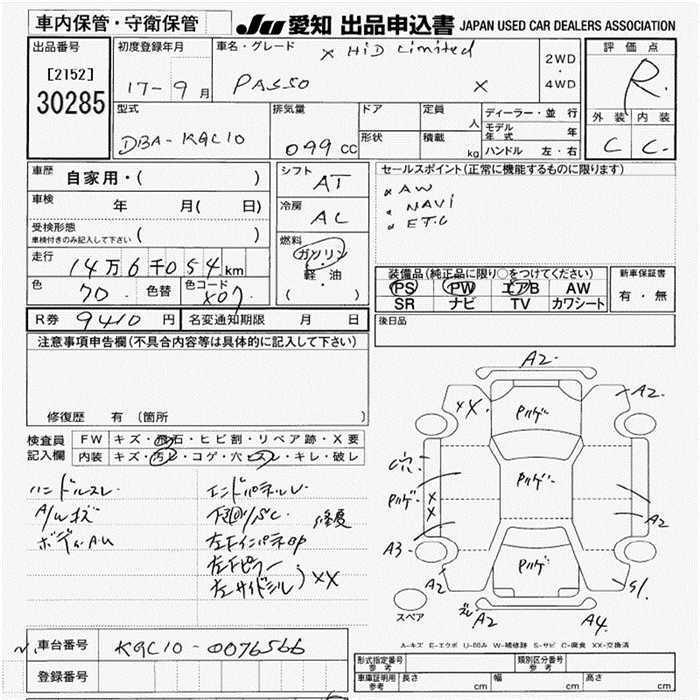 車内保管・守衛保管 JU 愛知 出品申込書 JAPAN USED CAR DEALERS ASSOCIATION
出品番号
[2152]
30285
初度登録年月
17-9月
車名・グレード
X HiD Limited
PASSO X
2WD
・
4WD
評価点
R.
外装 内装
C C.
型式
DBA-KGC10
排気量
099cc
ドア
形状
定員
人
積載
kg
ディーラー・並行
モデル年式 年
ハンドル 左・右
車歴
自家用・( )
車検
年 月( 日)
受検形態
車検付きのみ記入して下さい ( )
走行
14万6千054km
色
70. 色替 色コード X07.
R券 9410円 名変通知期限 月 日
シフト
AT
冷房
AC
燃料
ガソリン
・
軽・油
( )
セールスポイント(正常に機能するものに限ります)
x AW
x NAVi
x ETC
装備品(純正品に限り○をつけてください)
PS PW エアB AW
SR ナビ TV カワシート
新車保証書
有・無
後日品
注意事項申告欄(不具合内容等は具体的に記入して下さい)
修復歴 有 〔箇所
検査員
記入欄
FW キズ・飛石・ヒビ割・リペア跡・X要
内装 キズ・汚レ・コゲ・穴・スレ・キレ・破レ
ハンドルスレ
A/Wキズ
ボディAU
エンドパネルU
下回リSC
左Fインパネ凹
左Fピラー
左サイドシル
XX
A2.
XX. Pルーゲ A2.
Pルゲ
Pルゲ X
X
A2
A3.
A2 Pルゲ S1.
A2 A4.
スペア
A-キズ E-エクボ U-凹み W-補修跡 S-サビ C-腐食 XX-交換済
車台番号 KGC10-0076566
登録番号
形式指定番号 参考 類別区分番号 参考
車庫証明用 参考 長さ cm 幅 cm 高さ cm